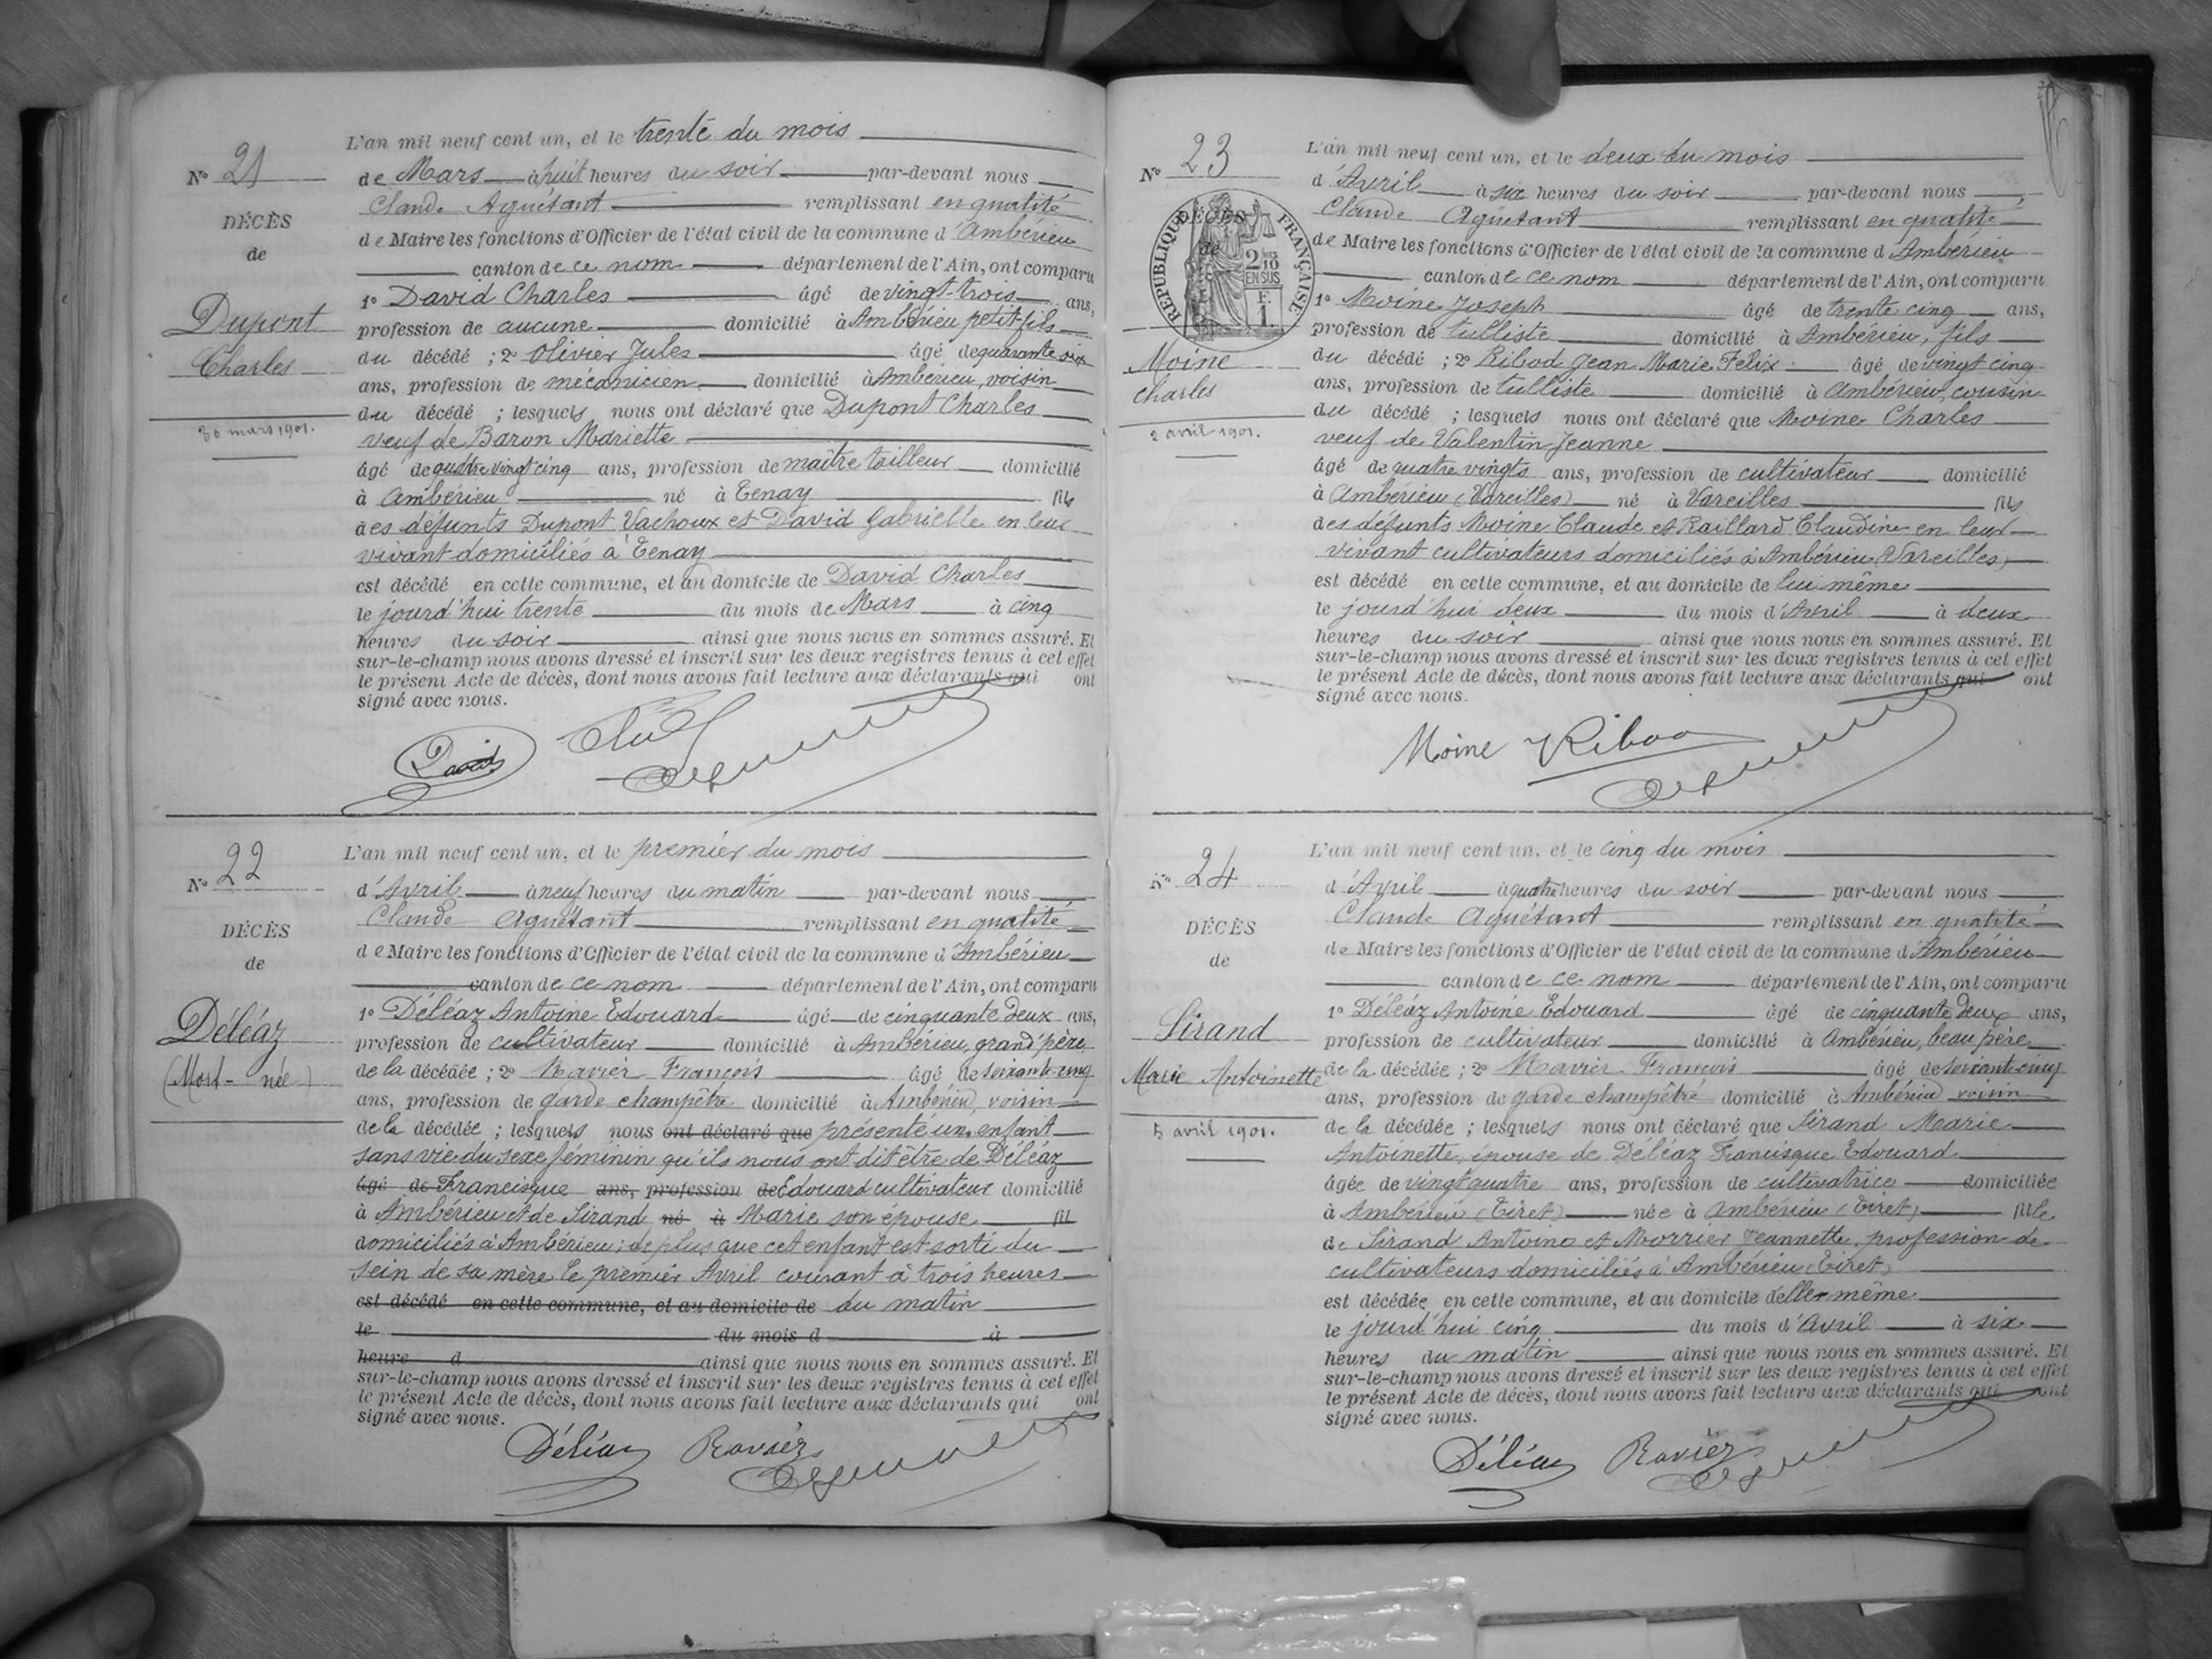 N° 21
DÉCÈS
de
Dupont
Charles
30 mars 1901.
L'an mil neuf cent un, et le trente du mois
de Mars à huit heures du soir par-devant nous
Claude Aguétant remplissant en qualité
de Maire les fonctions d'Officier de l'état civil de la commune d'Ambérieu
canton de ce nom département de l'Ain, ont comparu
1° David Charles âgé de vingt-trois ans,
profession de aucune domicilié à Ambérieu petit fils
du décédé ; 2° Olivier Jules âgé de quarante six
ans, profession de mécanicien domicilié à Ambérieu, voisin
du décédé ; lesquels nous ont déclaré que Dupont Charles
veuf de Baron Mariette
âgé de quatre vingt cinq ans, profession de maître tailleur domicilié
à Ambérieu né à Tenay fils
des défunts Dupont Vachoux et David Gabrielle en leur
vivant domiciliés à Tenay
est décédé en cette commune, et au domicile de David Charles
le jourd'hui trente du mois de Mars à cinq
heures du soir ainsi que nous nous en sommes assuré. Et
sur-le-champ nous avons dressé et inscrit sur les deux registres tenus à cet effet
le présent Acte de décès, dont nous avons fait lecture aux déclarants qui ont
signé avec nous.
David
N° 22
DÉCÈS
de
Déléaz
(Mort-née)
L'an mil neuf cent un, et le premier du mois
d'Avril à neuf heures du matin par-devant nous
Claude Aguétant remplissant en qualité
de Maire les fonctions d'Officier de l'état civil de la commune d'Ambérieu
canton de ce nom département de l'Ain, ont comparu
1° Déléaz Antoine Edouard âgé de cinquante deux ans,
profession de cultivateur domicilié à Ambérieu, grand'père
de la décédée ; 2° Ravier François âgé de soixante-cinq
ans, profession de garde champêtre domicilié à Ambérieu, voisin
de la décédée ; lesquels nous ont déclaré que présenté un enfant
sans vie du sexe féminin qu'ils nous ont dit être de Déléaz
âgé de Francisque ans, profession de Edouard cultivateur domicilié
à Ambérieu et de Sirand né à Marie son épouse fil
domiciliés à Ambérieu ; de plus que cet enfant est sorti du
sein de sa mère le premier Avril courant à trois heures
est décédé en cette commune, et au domicile de du matin
le du mois d à
heure d ainsi que nous nous en sommes assuré. Et
sur-le-champ nous avons dressé et inscrit sur les deux registres tenus à cet effet
le présent Acte de décès, dont nous avons fait lecture aux déclarants qui ont
signé avec nous.
Déléaz Ravier
N° 23
RÉPUBLIQUE FRANÇAISE
DÉCÈS
de
2/10
EN SUS
F.
1.
Moine
Charles
2 avril 1901.
L'an mil neuf cent un, et le deux du mois
d'Avril à six heures du soir par-devant nous
Claude Aguétant remplissant en qualité
de Maire les fonctions d'Officier de l'état civil de la commune d'Ambérieu
canton de ce nom département de l'Ain, ont comparu
1° Moine Joseph âgé de trente cinq ans,
profession de tulliste domicilié à Ambérieu, fils
du décédé ; 2° Ribod Jean Marie Felix âgé de vingt cinq
ans, profession de tulliste domicilié à Ambérieu, cousin
du décédé ; lesquels nous ont déclaré que Moine Charles
veuf de Valentin Jeanne
âgé de quatre vingts ans, profession de cultivateur domicilié
à Ambérieu (Vareilles) né à Vareilles fils
des défunts Moine Claude et Raillard Claudine en leur
vivant cultivateurs domiciliés à Ambérieu (Vareilles)
est décédé en cette commune, et au domicile de lui même
le jourd'hui deux du mois d'Avril à deux
heures du soir ainsi que nous nous en sommes assuré. Et
sur-le-champ nous avons dressé et inscrit sur les deux registres tenus à cet effet
le présent Acte de décès, dont nous avons fait lecture aux déclarants qui ont
signé avec nous.
Moine Ribod
N° 24
DÉCÈS
de
Sirand
Marie Antoinette
5 avril 1901.
L'an mil neuf cent un, et le cinq du mois
d'Avril à quatre heures du soir par-devant nous
Claude Aguétant remplissant en qualité
de Maire les fonctions d'Officier de l'état civil de la commune d'Ambérieu
canton de ce nom département de l'Ain, ont comparu
1° Déléaz Antoine Edouard âgé de cinquante deux ans,
profession de cultivateur domicilié à Ambérieu, beau père
de la décédée ; 2° Ravier François âgé de soixante cinq
ans, profession de garde champêtre domicilié à Ambérieu voisin
de la décédée ; lesquels nous ont déclaré que Sirand Marie
Antoinette, épouse de Déléaz Francisque Edouard
âgée de vingt quatre ans, profession de cultivatrice domiciliée
à Ambérieu (Tiret) née à Ambérieu (Tiret) fille
de Sirand Antoine et Morrier Jeannette, profession de
cultivateurs domiciliés à Ambérieu (Tiret)
est décédée en cette commune, et au domicile d'elle même
le jourd'hui cinq du mois d'Avril à six
heures du matin ainsi que nous nous en sommes assuré. Et
sur-le-champ nous avons dressé et inscrit sur les deux registres tenus à cet effet
le présent Acte de décès, dont nous avons fait lecture aux déclarants qui ont
signé avec nous.
Déléaz Ravier